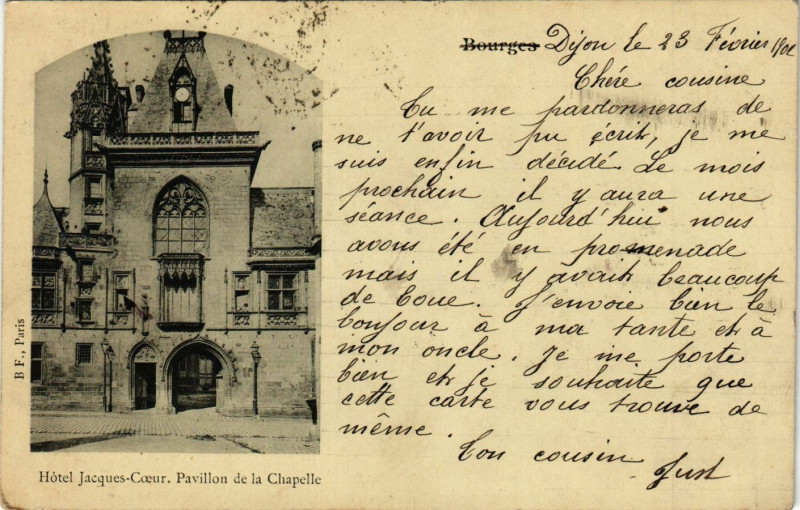 Bourges Dijon le 23 Février 1901
Chére cousine
Tu me pardonneras de
ne t'avoir pu écrit, je me
suis enfin décidé. Le mois
prochain il y aura une
séance. Aujourd'hui nous
avons été en promenade
mais il y avait beaucoup
de boue. J'envoie bien le
bonjour à ma tante et à
mon oncle. Je me porte
bien et je souhaite que
cette carte vous trouve de
même.
Ton cousin
Just
B F., Paris
Hôtel Jacques-Cœur. Pavillon de la Chapelle